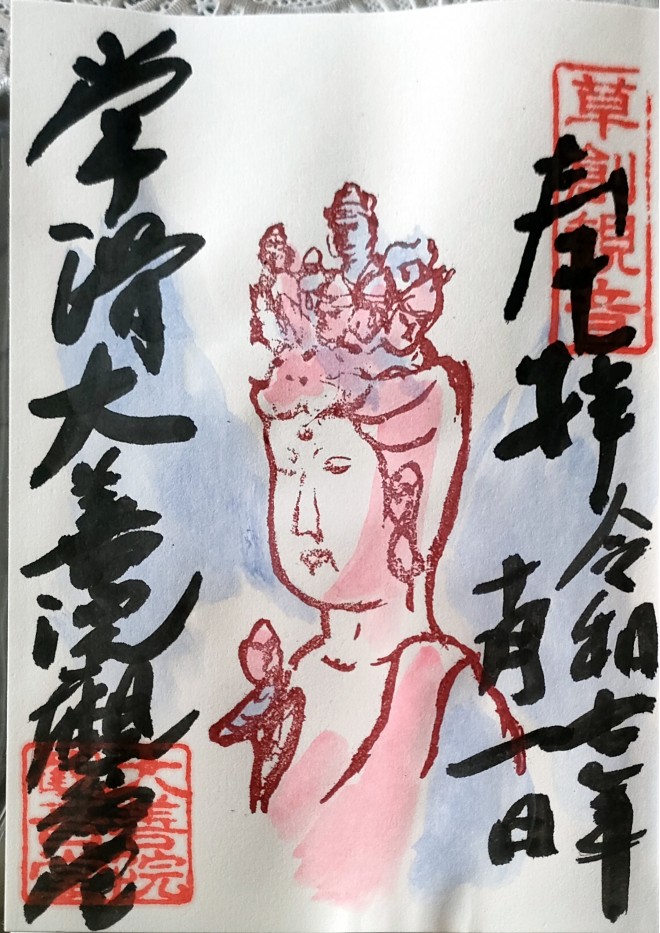 草創観音
奉拝
令和七年
十月一日
常滑大善院觀音堂
大善院